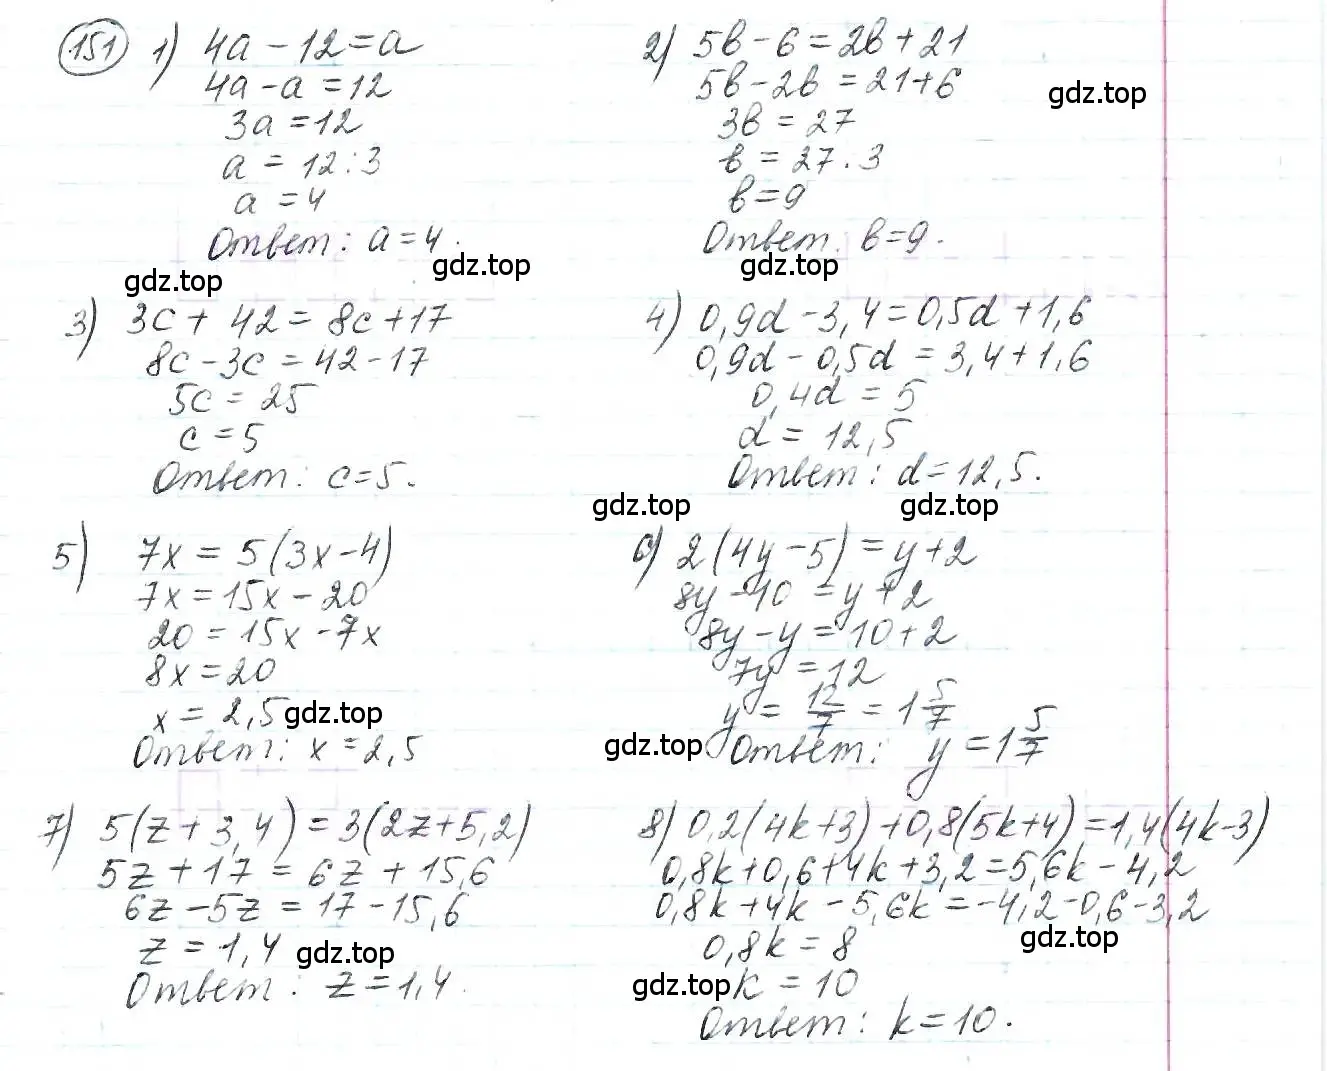 151 1) 4a - 12 = a
4a - a = 12
3a = 12
a = 12 : 3
a = 4
Ответ: a = 4.
gdz.top
2) 5b - 6 = 2b + 21
5b - 2b = 21 + 6
gdz.top
3b = 27
b = 27 : 3
b = 9
Ответ: b = 9.
gdz.top
gdz.top
3) 3c + 42 = 8c + 17
8c - 3c = 42 - 17
5c = 25
c = 5
Ответ: c = 5.
4) 0,9d - 3,4 = 0,5d + 1,6
0,9d - 0,5d = 3,4 + 1,6
0,4d = 5
d = 12,5
Ответ: d = 12,5.
gdz.top gdz.top
5) 7x = 5(3x - 4)
7x = 15x - 20
20 = 15x - 7x
8x = 20
x = 2,5
gdz.top
Ответ: x = 2,5
6) 2(4y - 5) = y + 2
8y - 10 = y + 2
8y - y = 10 + 2
7y = 12
y = 12/7 = 1 5/7
gdz.top
Ответ: y = 1 5/7
7) 5(z + 3,4) = 3(2z + 5,2)
5z + 17 = 6z + 15,6
6z - 5z = 17 - 15,6
z = 1,4
gdz.top
Ответ: z = 1,4.
8) 0,2(4k+3) + 0,8(5k+4) = 1,4(4k-3)
0,8k + 0,6 + 4k + 3,2 = 5,6k - 4,2
0,8k + 4k - 5,6k = -4,2 - 0,6 - 3,2
gdz.top
0,8k = 8
gdz.top
k = 10
Ответ: k = 10.